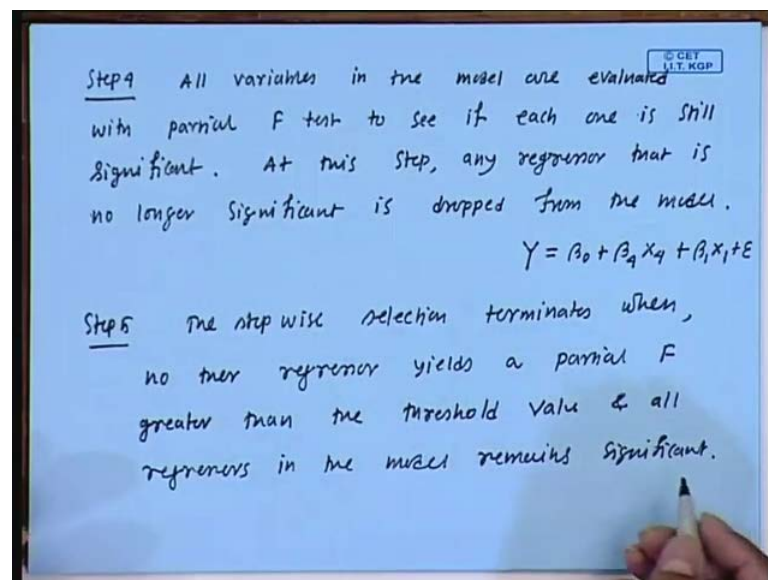 © CET
I.I.T. KGP
Step 4 All variables in the model are evaluated
with partial F test to see if each one is still
significant. At this step, any regressor that is
no longer significant is dropped from the model.
Y = β₀ + β₄ X₄ + β₁ X₁ + ε
Step 5 The step wise selection terminates when,
no ther regressor yields a partial F
greater than the threshold value & all
regressors in the model remains significant.